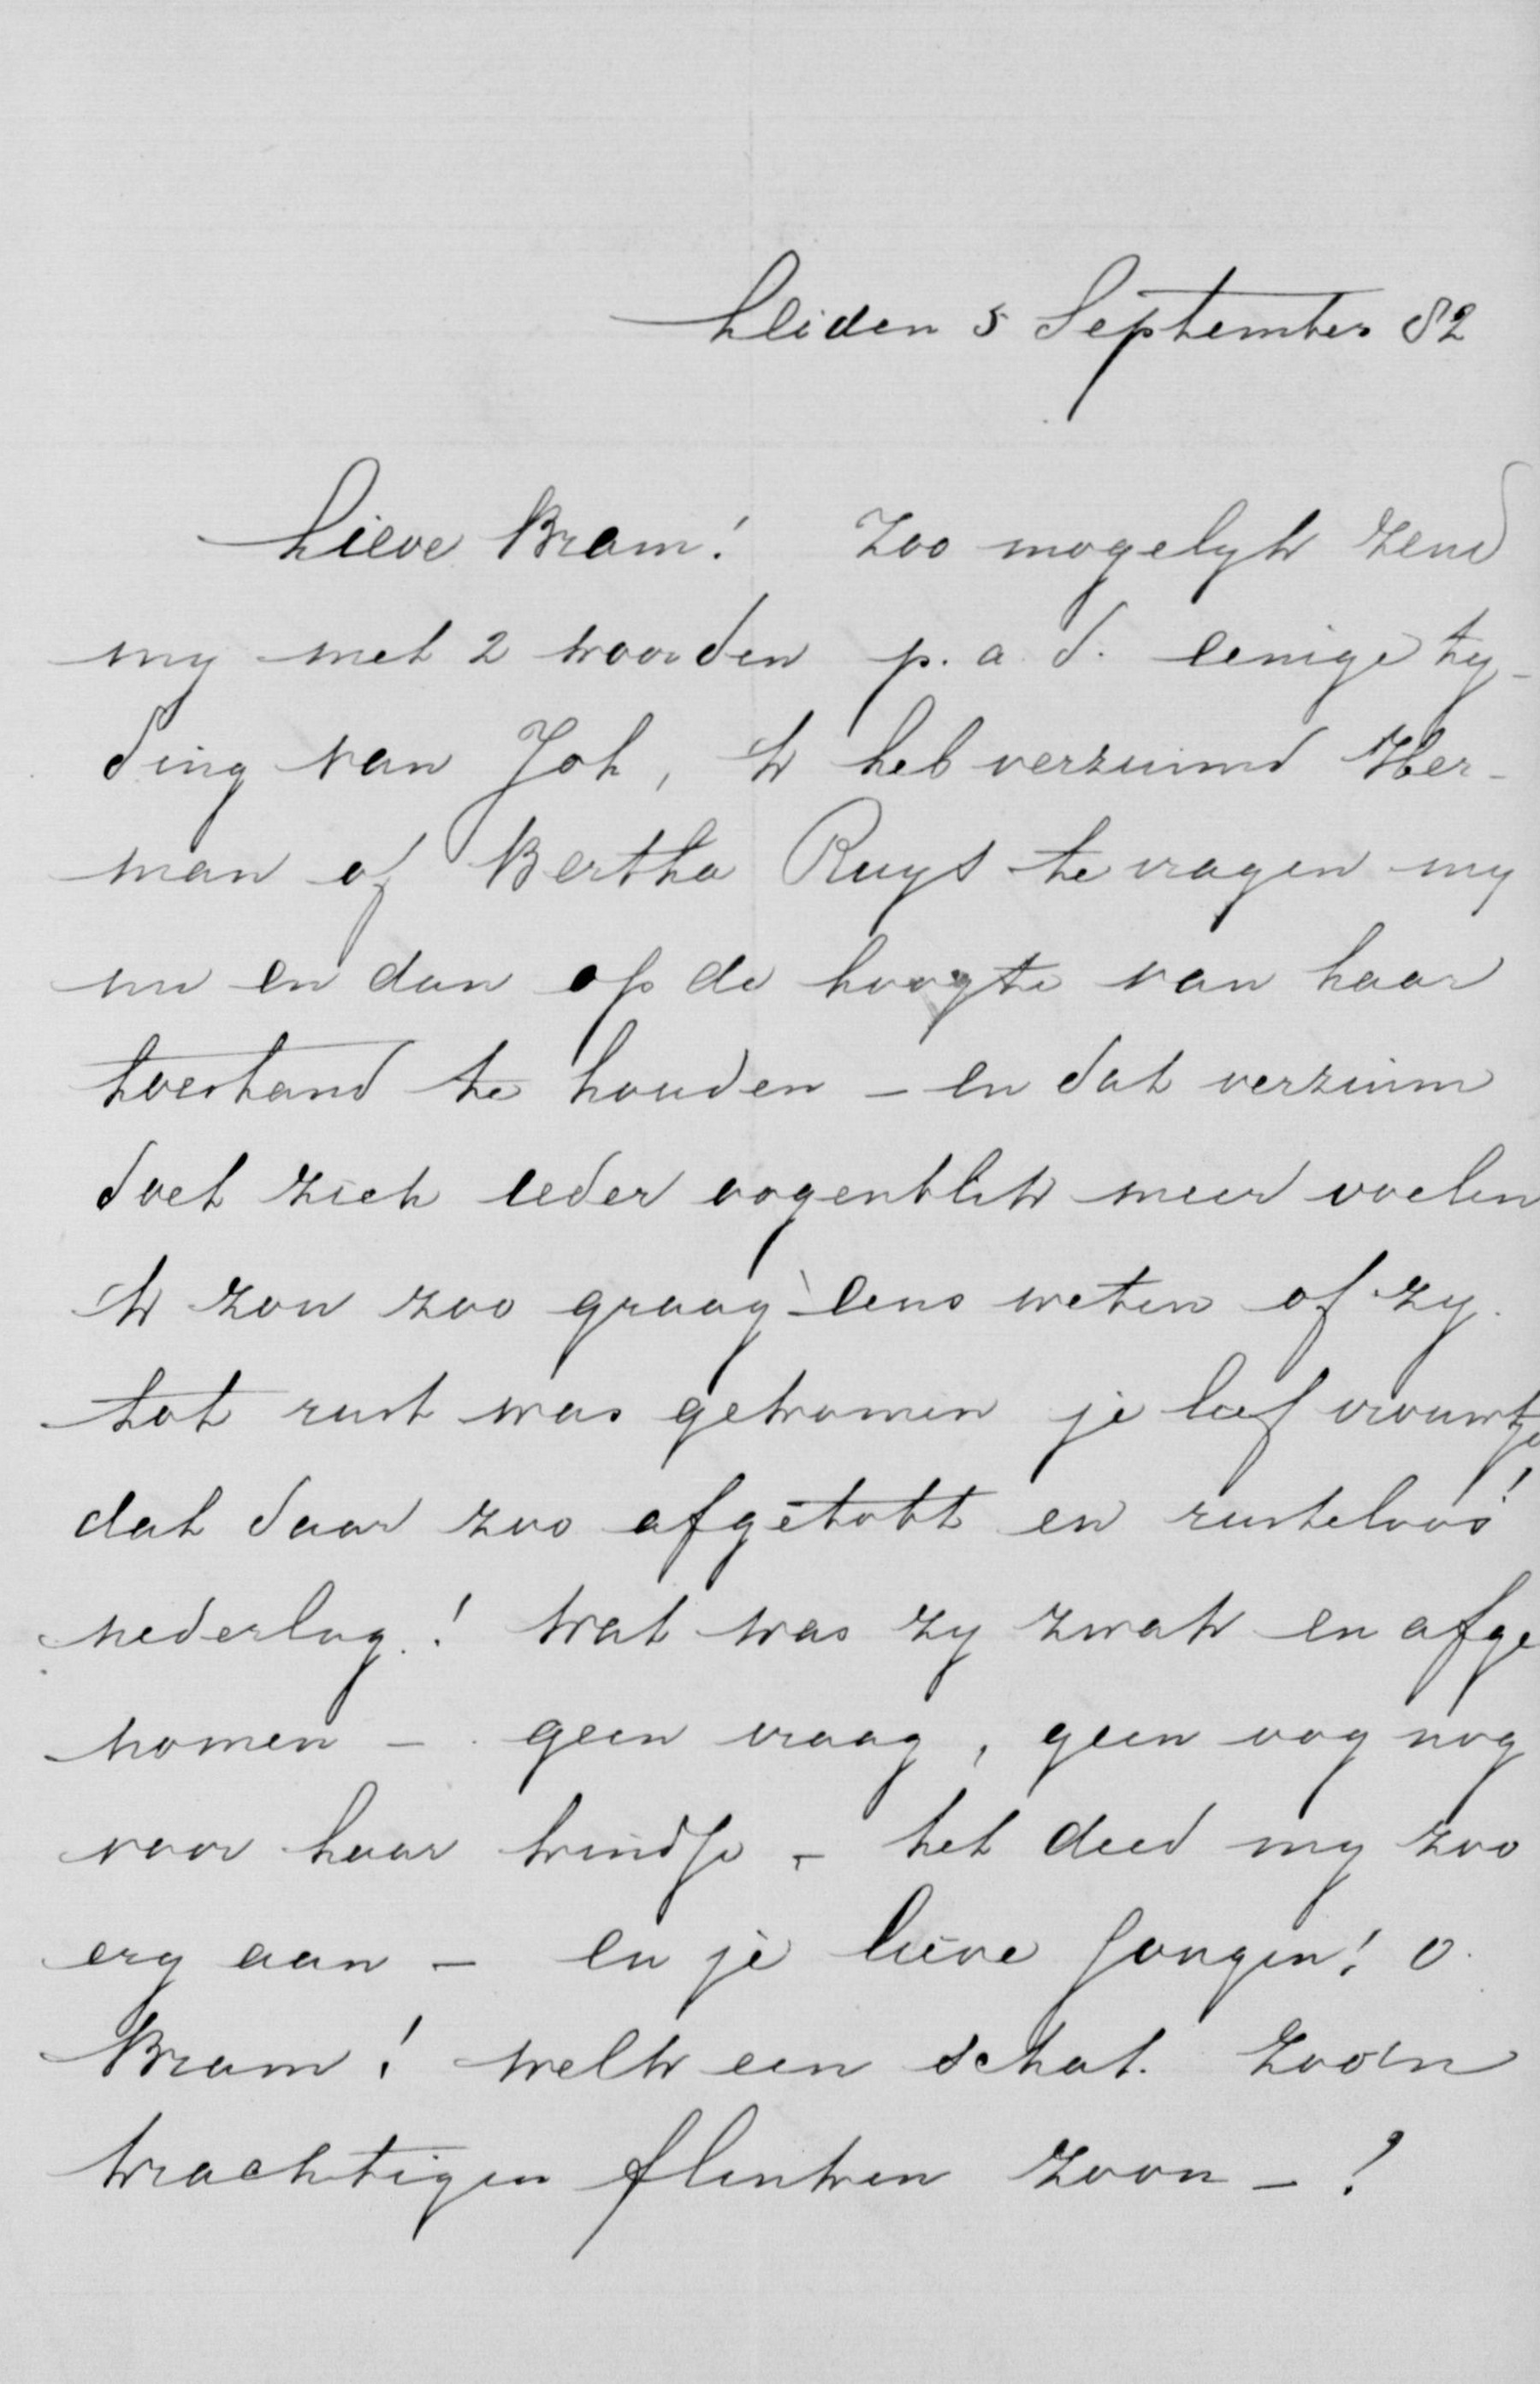 Leiden 5 September 82
Lieve Bram! Zoo mogelyk zend
my met 2 woorden p. a. d. eenige ty-
ding van Joh, ik heb verzuimd Her-
man of Bertha Ruys te vragen my
nu en dan op de hoogte van haar
toestand te houden - en dat verzuim
doet zich ieder oogenblik meer voelen
ik zou zoo graag eens weten of zy
tot rust was gekomen je lief vrouwtje
dat daar zoo afgetobt en rusteloos
nederlag! Wat was zy zwak en afge
nomen - geen vraag, geen oog nog
voor haar kindje - het deed my zoo
erg aan - en je lieve jongen! o
Bram! welk een schat. Zoo'n
krachtigen flinken zoon - !